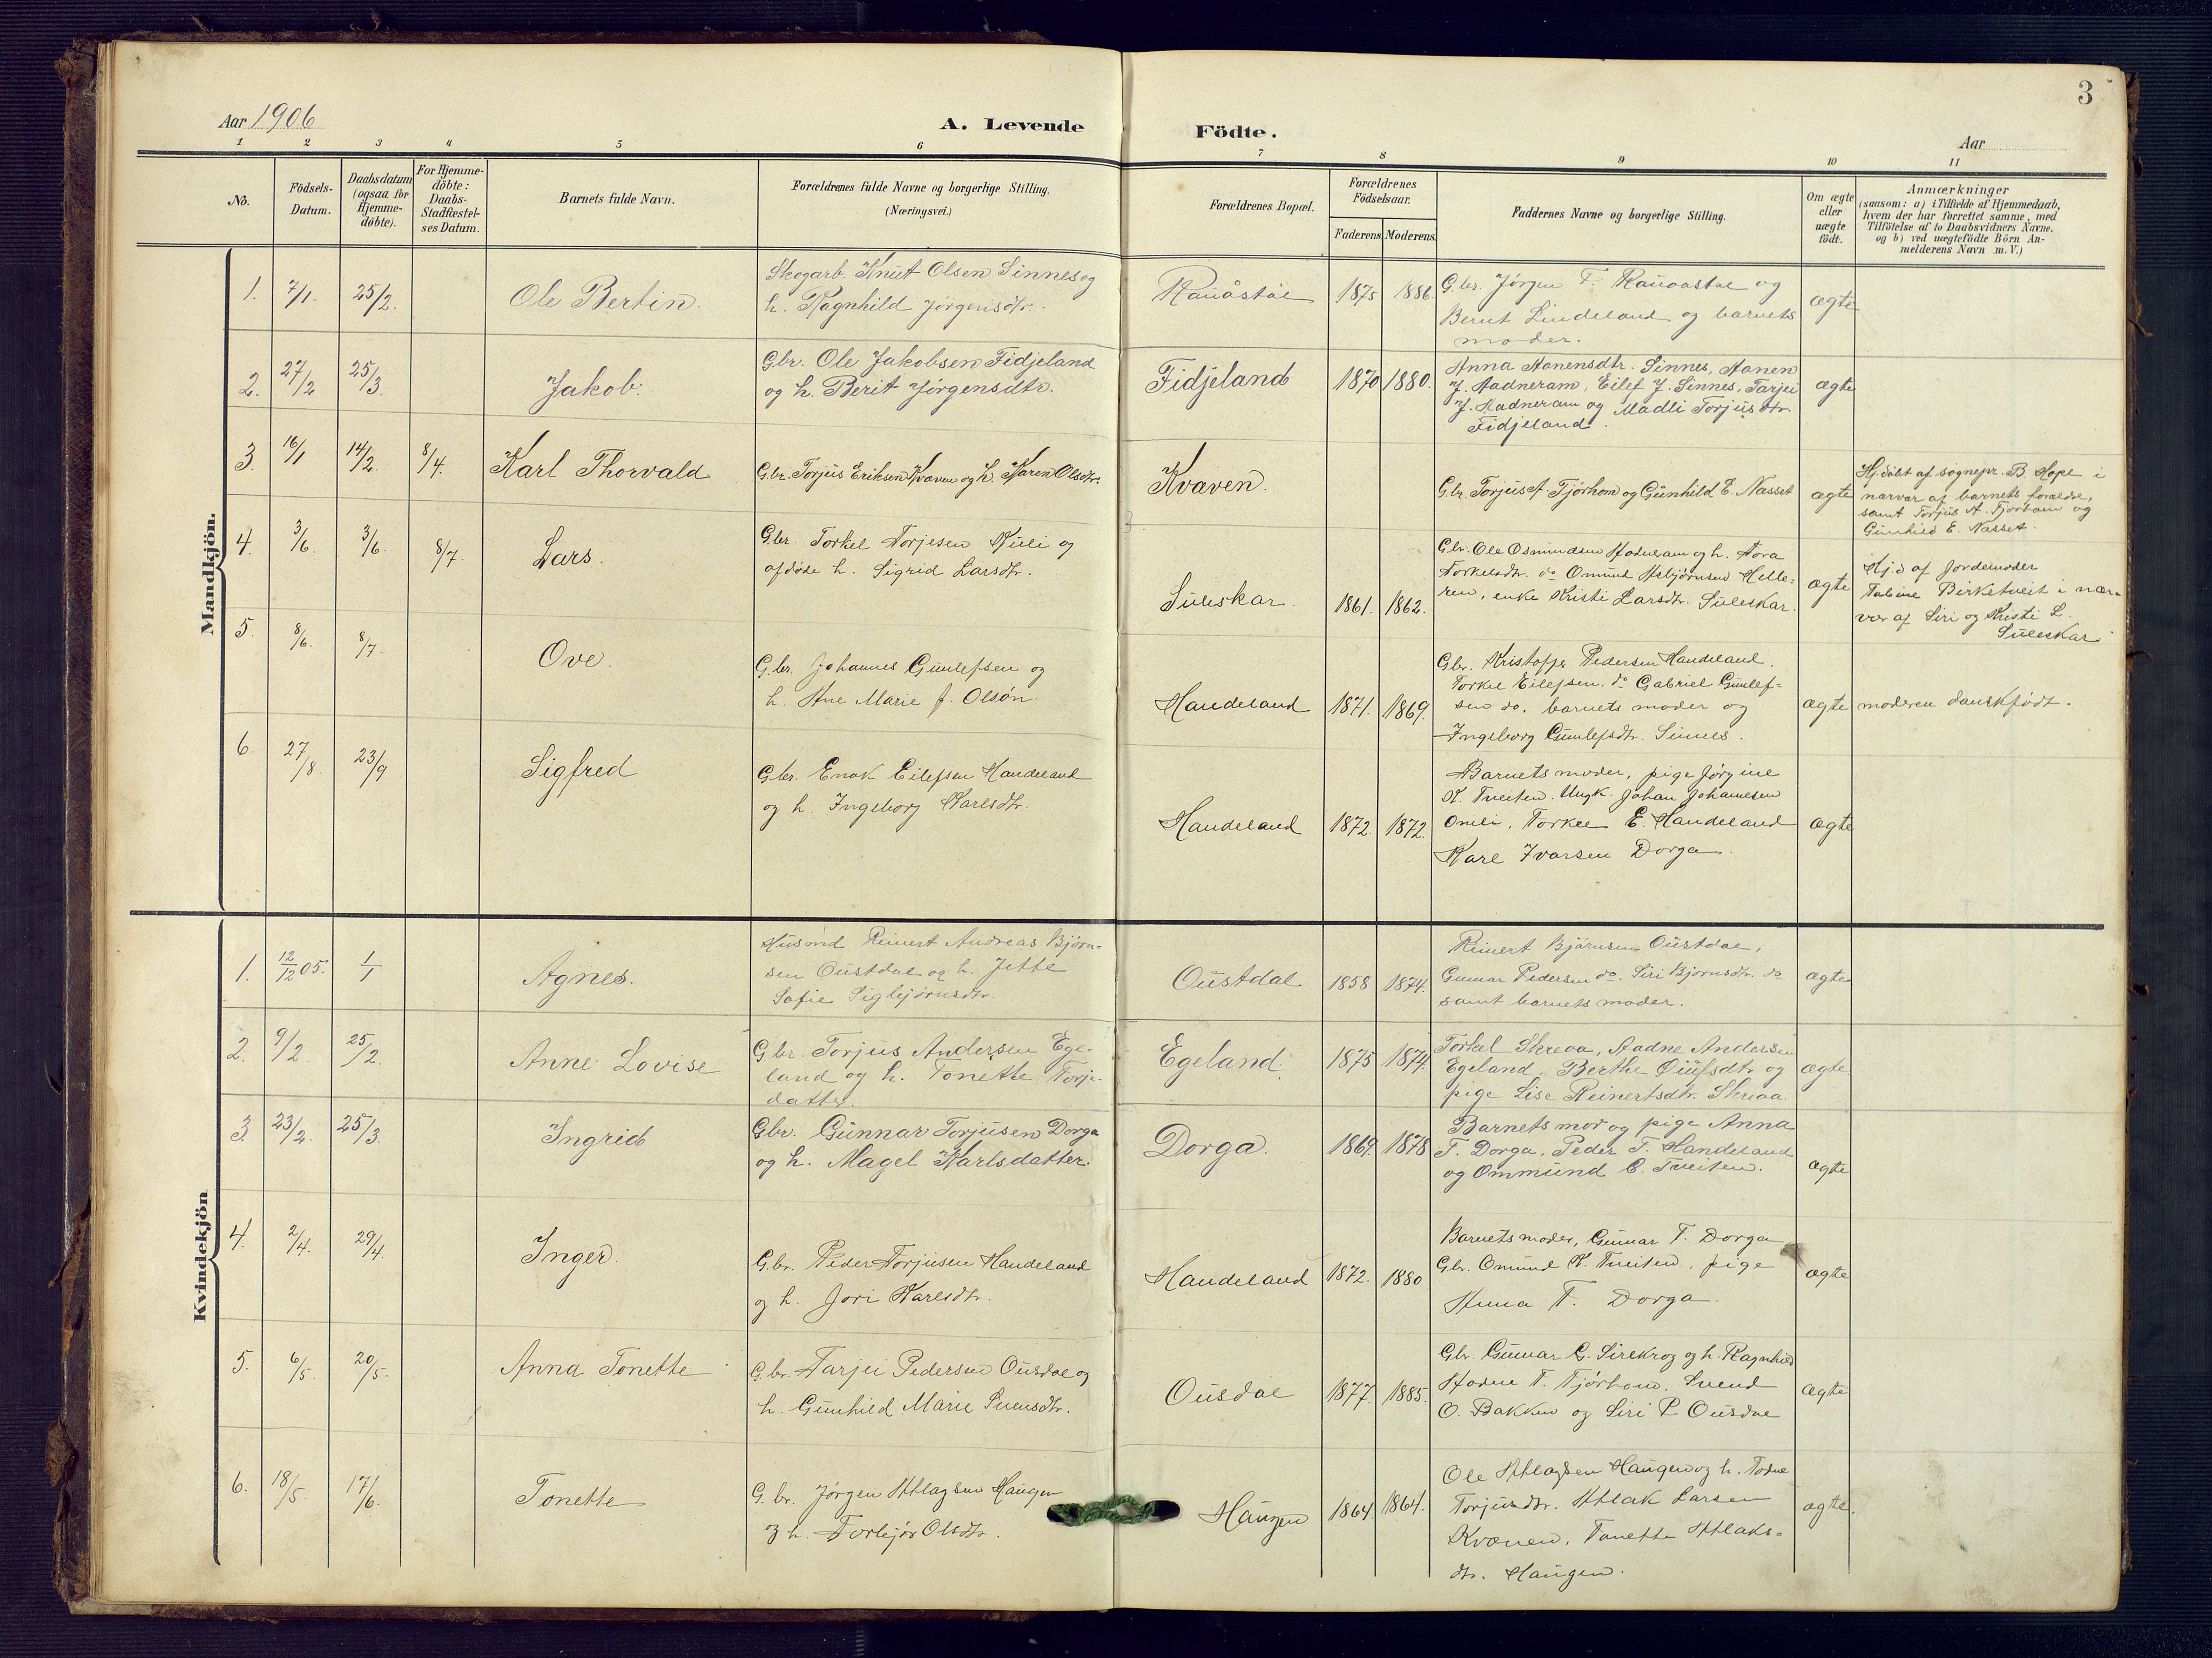 3
Aar 1906
A. Levende
Födte.
Aar
1 2 3 4 5 6 7 8 9 10 11
No.
Födsels-
Datum.
Daabsdatum
(ogsaa for
Hjemme-
döbte).
For Hjemme-
döbte:
Daabs-
Stadfæstel-
ses Datum.
Barnets fulde Navn.
Forældrenes fulde Navne og borgerlige Stilling.
(Næringsvei.)
Forældrenes Bopæl.
Forældrenes
Födselsaar.
Faderens. Moderens.
Faddernes Navne og borgerlige Stilling.
Om ægte
eller
uægte
födt.
Anmærkninger
(saasom: a) i Tilfælde af Hjemmedaab,
hvem der har forrettet samme, med
Tilföielse af to Daabsvidners Navne.
og b) ved uægtefödte Börn An-
melderens Navn m. V.)
Mandkjön.
1. 7/1. 25/2. Ole Bertin.
Skogarb. Knut Olsen Sinnes og
h. Ragnhild Jørgensdtr.
1875 1886.
G.br. Jørgen T. og
Berut Lindeland og barnets
moder.
ægte
2. 27/2 25/3. Jakob.
Gbr. Ole Jakobsen Fidjeland
og h. Berit Jørgensdtr.
Fidjeland 1870 1880.
Anna Aanensdtr. Sinnes, Aanen
J. Aadneram, Eilef J. Sinnes, Tarjei
J. Aadneram og Madli Torjusdtr.
Fidjeland.
ægte
3. 16/1 14/2. 8/4. Karl Thorvald
G.br. Torjus Eriksen Kvæven og h. Karen Olsdtr.
Kvæven.
G.br. Torjus A Tjørhom og Gunhild E. Nasset
ægte
Hj.døbt af sognepr. B. Hope i
nærvær af barnets forældre,
samt Torjus A. Tjørhom og
Gunhild E. Nasset.
4. 3/6. 3/6. 8/7. Lars.
G.br. Torkel Torjesen Kuli og
afdøde h. Sigrid Larsdtr.
Suleskar. 1861. 1862.
G.br. Ole Osmundsen Aadneram og h. Tora
Torkelsdtr. do Omund Asbjørnsen Helle-
ren, enke Kristi Larsdtr. Suleskar.
ægte
Hj.d af Jordemoder
Tobine Birketveit i nær-
vær af Siri og Kristi L.
Suleskar
5. 8/6. 8/7. Ove.
G.br. Johannes Gunlefsen og
h. Ane Marie J. Olsøn.
Handeland 1871. 1869.
G.br. Kristoffer Pedersen Handeland.
Torkel Eilefsen. do Gabriel Gunlef-
sen do. barnets moder og
Ingeborg Gunlefsdtr. Sinnes.
ægte moderen danskfødt.
6. 27/8. 23/9 Sigfred
G.br. Enok Eilefsen Handeland
og h. Ingeborg Karlsdtr.
Handeland 1872. 1872.
Barnets moder, pige Jørgine
K. Tveiten. Ungk. Johan Johannesen
Omli, Torkel E. Handeland
Karl Ivarsen Dorga.
ægte
Kvindekjön
1. 12/12 05. 1/1 Agnes.
Husmd Reinert Andreas Bjørn-
sen Oustdal og h. Jette
Sofie Sigbjørnsdtr.
Oustdal 1858 1874.
Reinert Bjørnsen Oustdal,
Gunnar Pedersen do. Siri Bjørnsdtr. do
samt barnets moder.
ægte
2. 9/2. 25/2. Anne Lovise
G.br. Torjus Andersen Ege-
land og h. Tonette Torje-
datter.
Egeland. 1875 1874.
Torkel Skreaa, Aadne Andersen
Egeland, Berthe og
pige Lise Reinertsdtr. Skreaa.
ægte.
3. 23/2. 25/3. Ingrid
Gbr. Gunnar Torjusen Dorga
og h. Magel Karlsdatter.
Dorga. 1869. 1878
Barnets mor og pige Anna
T. Dorga, Peder T. Handeland
og Ommund C. Tveiten.
ægte
4. 2/4. 29/4. Inger.
G.br. Peder Torjusen Handeland
og h. Jori Karlsdtr.
Handeland 1872. 1880
Barnets moder, Gunnar T. Dorga
G.br. Omund K. Tveiten, pige
Anna T. Dorga.
ægte
5. 6/5. 20/5. Anna Tonette
G.br. Tarjei Pedersen Ousdal og
h. Gunhild Marie Svensdtr.
Ousdal 1877. 1885.
G.br. Gunnar G. Sirekrog og h. Ragnhild
Aadne T. Tjørhom. Svend
O. Bakken og Siri P. Ousdal
ægte
6. 18/5. 17/6. Tonette
G.br. Jørgen Atlaksen Haugen
og h. Torbjør Olsdtr.
Haugen 1864. 1864.
Ole Atlaksen Haugen og h. Todne
Torjusdtr. Atlak Larsen
Kvæven, Tonette Atlaks-
dtr. Haugen.
ægte.